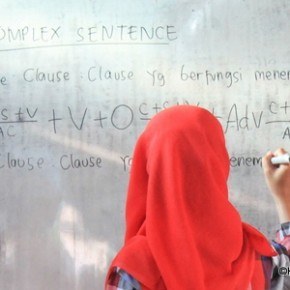 OMPLEX SENTENCE
e Clause : Clause Yg berfungsi menem
S+V + V + O C+S+V + Adv C+
AC A
Clause : Clause Y enem